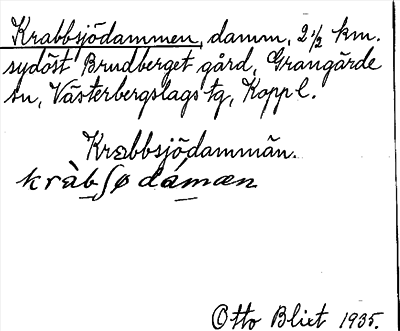 Krabbsjödammen, damm, 2 1/2 km.
sydöst Brudberget gård, Grangärde
sn, Västerbergslags tg, Kopp l.
Krabbsjödammän.
kràbʃødámæn
Otto Blixt 1935.